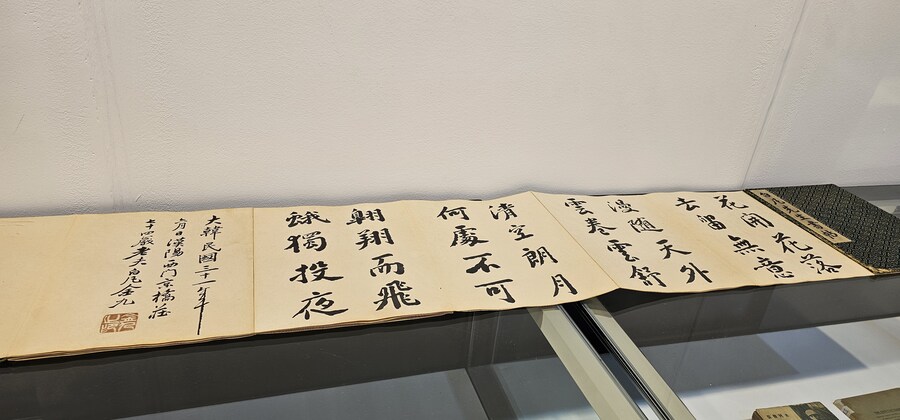 花開花落
去留無意
漫隨天外
雲卷雲舒
清空朗月
何處不可
翱翔而飛
蛾獨投夜
大韓民國三十一年
月日漢陽西門京橋莊
七十四歲老夫白凡金九
金九之印